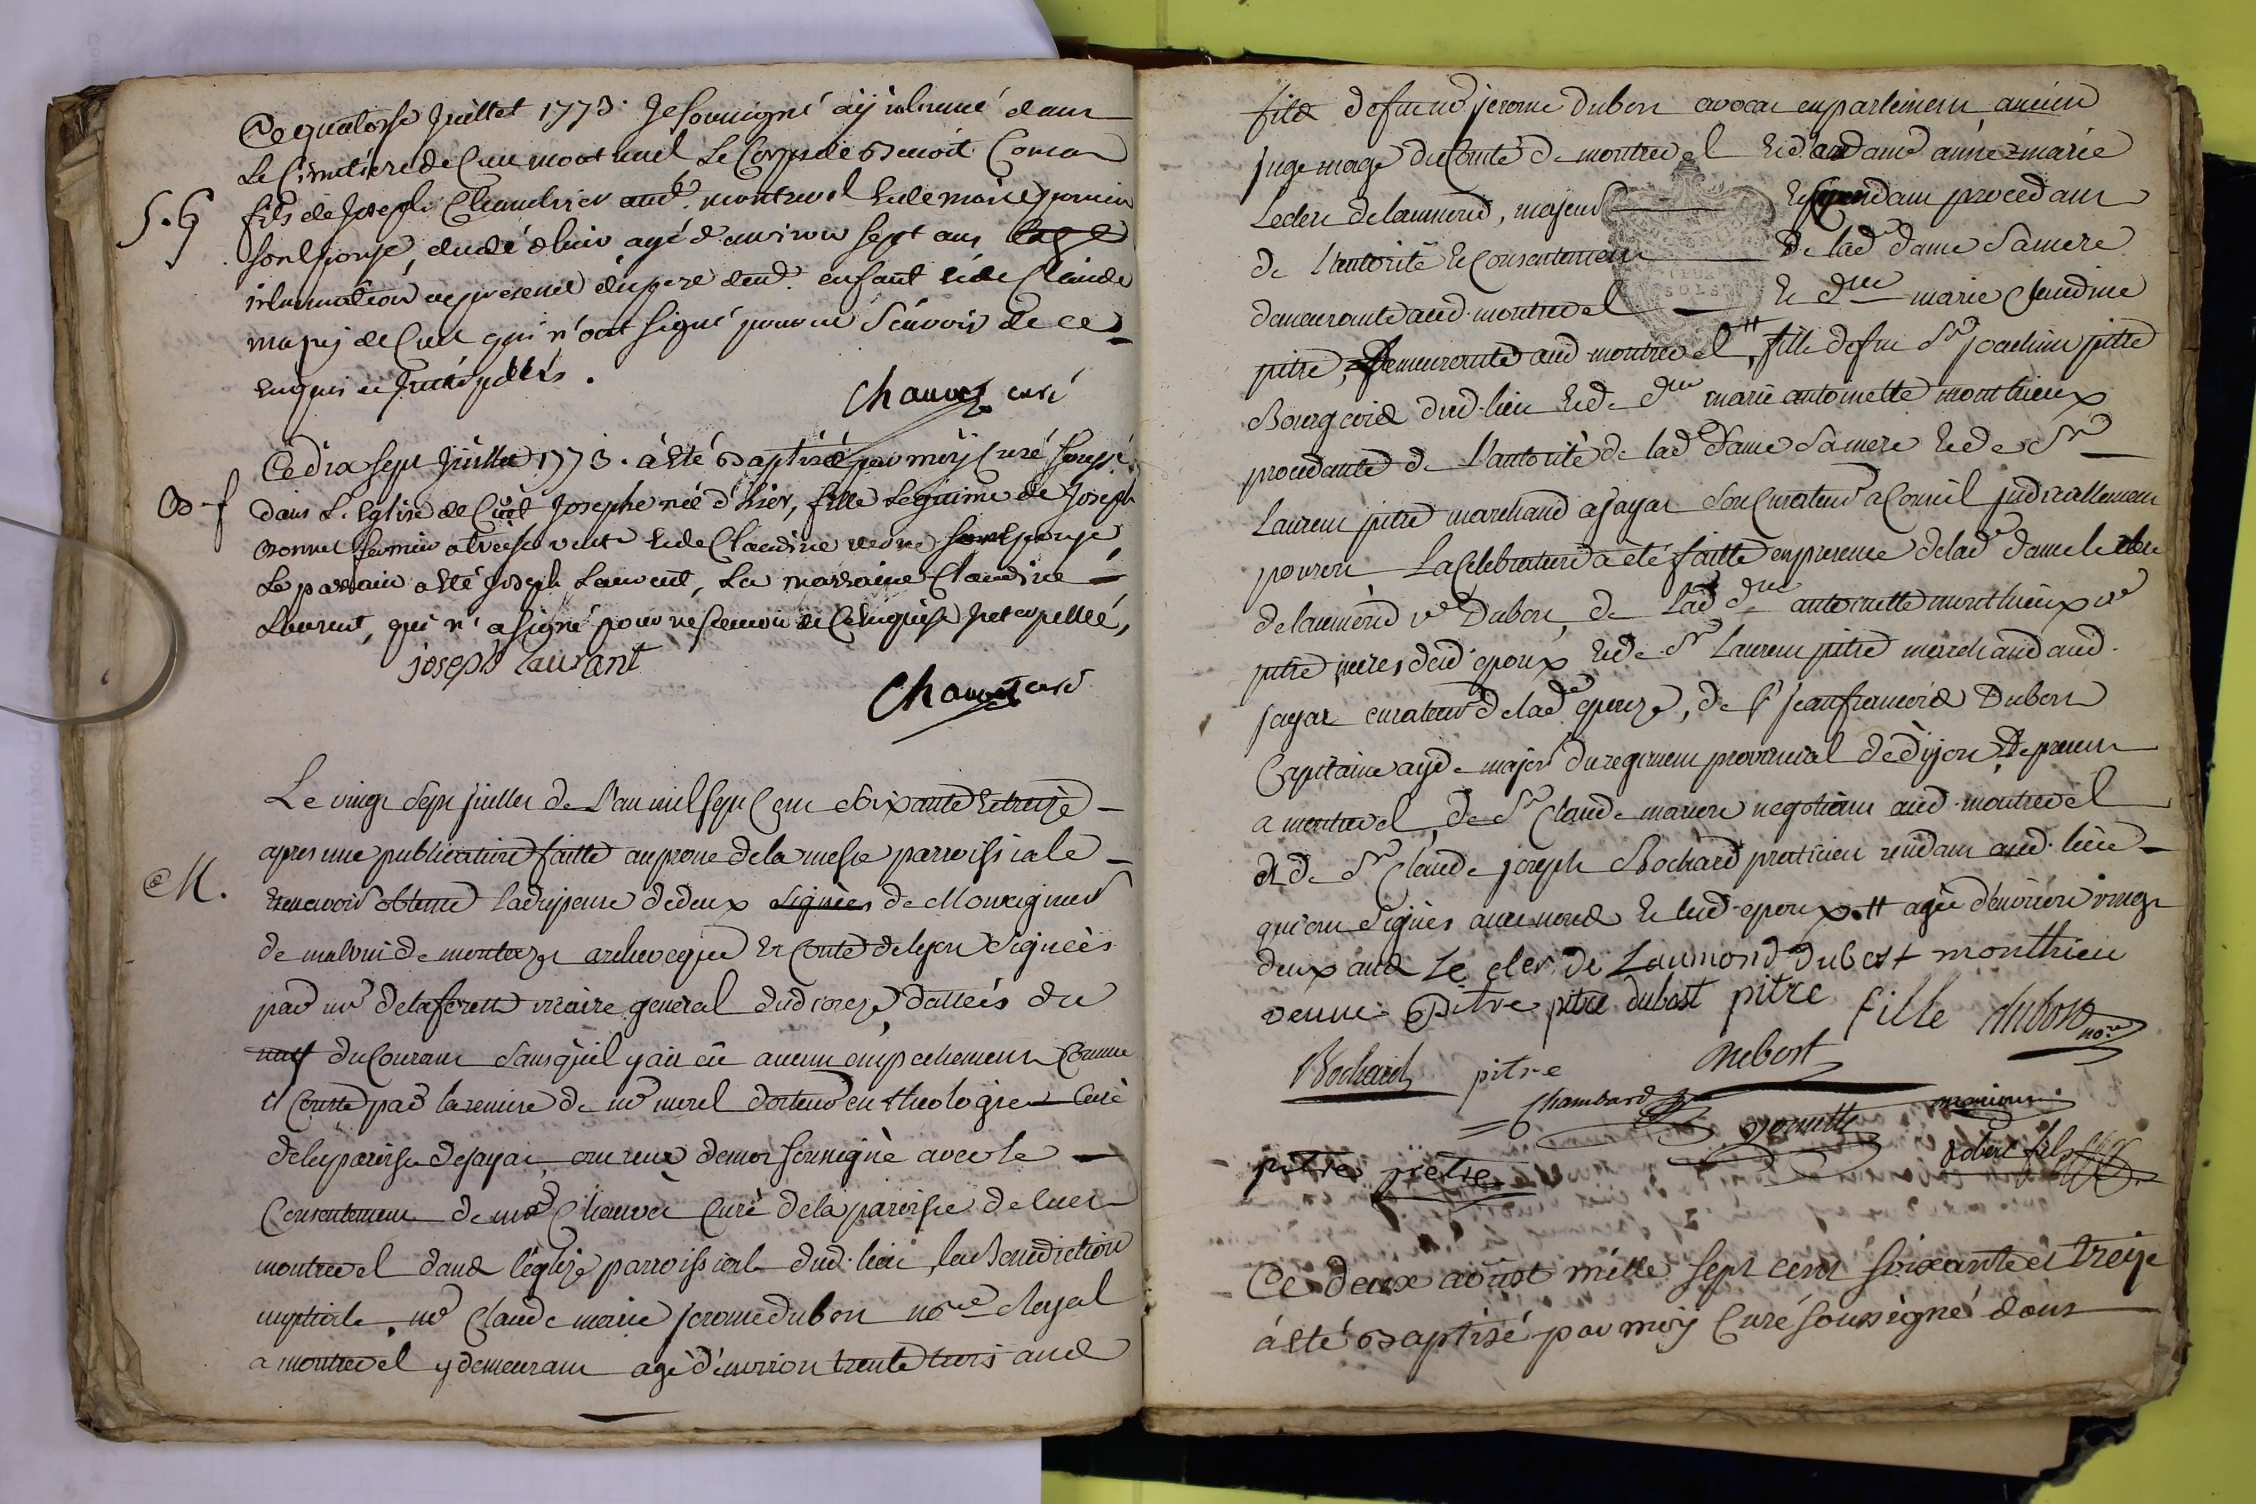 Ce quatorse Juillet 1773. Je soussigné aÿ inhumé dans
Le Cimetiere de Cuet montrevel Le Corps de Benoit Coma
S. G
fils de Joseph Chambrier aud.t montrevel et de marie
son Epouse, decedé d'hier agé d'environ sept ans
inhumation en presence du pere dud. enfant et de Claude
de Cuet qui n'ont signé pour ne Scavoir de ce
Enquis et Interpellés.
Chauvet curé
Ce dix sept Juillet 1773. à Eté Baptisée par moy Curé soussigné
B. f
dans L'Eglise de Cuet Josephe née d'hier, fille Legitime de Joseph
fermier et de Claudine son Epouse
Le parrain a Eté Joseph Laurent, La marraine Claudine
Laurent, qui n'a signé pour ne scavoir de ce Enquise Interpellée,
joseph laurant
Chauvet curé
Le vingt sept juillet de L'an mil sept Cent soixante et treize
M.
apres une publication faitte au prone de la messe parroissiale
et avoir obtenu la dispense de deux signées de Monseigneur
de malvin de montazet archeveque et Comte de lyon signées
par mr vicaire general dud. dattées du
neuf du Courant sans qu'il y ait eû aucun empechement Comme
il Conste par la remise de mr morel docteur en theologie Curé
de la paroisse de jayat, ont reçu de moi soussigné avec le
Consentement de mr Chauvet Curé de la paroisse de Cuet
montrevel dans l'eglize parroissiale dud. lieu, la Benediction
nuptiale, mr Claude marie jerome dubost nore Royal
a montrevel y demeurant agé d'environ trente trois ans
fils de feu mr jerome dubost avocat en parlement, ancien
juge mage du Comté de montrevel et de dame anne marie
Leclerc de laumond, majeur procedant
de l'autorité et Consentement de lad. dame sa mere
demeurante aud. montrevel et dlle marie Claudine
pitre, demeurante aud montrevel # fille de feu Sr joachim pitre
Bourgeois dud. lieu et de dlle marie antoinette monthieux
procedante de L'autorité de lad. dame sa mere et de Sr
Laurent pitre marchand a jayat son Curateur a Conseil judiciellement
pourvu. La Celebration a eté faitte en presence de lad. dame le clerc
de laumond ve Dubost, de lad. dlle antoinette monthieux ve
pitre meres desd. epoux et de Sr laurent pitre marchand aud.
jayat curateur de lad. epouze, de Sr jean françois Dubost
Capitaine ayde major du regiment provincial de dijon, de present
a montrevel, de Sr Claude negotiant aud. montrevel
et de Sr Claude joseph Bochard praticien residant aud. lieu
qui ont signés avec nous et lesd. epoux. # agée d'environ vingt
deux ans Le clerc de Laumond dubost monthieu
veuve Pitre pitre dubost pitre fille dubost nore
Bochard pitre dubost
Chambard
pitre pretre robert fils
Ce deux aoûst mille sept cent soixante et treize
à Eté Baptisé par moy Curé soussigné dans